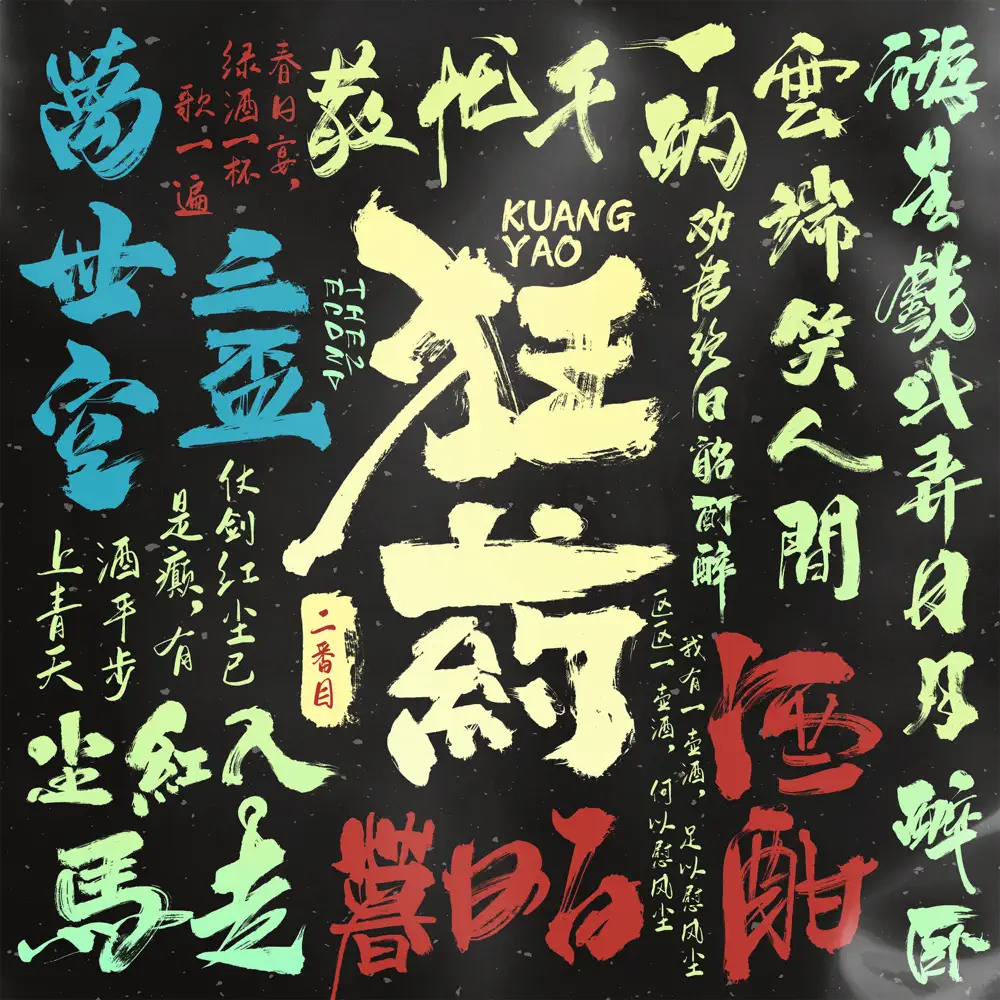 星戲斗弄日月
醉卧
雲端笑人間
一酌
千忧散
三盃
萬世空
劝君终日酩酊醉
春日宴，
绿酒一杯
歌一遍
KUANG
YAO
狂葯
THE2
ECOND
二番目
仗剑红尘已
是癫，有
酒平步
上青天
我有一壶酒，足以慰风尘
区区一壶酒，何以慰风尘
酒酣
白日暮
走馬
入紅尘